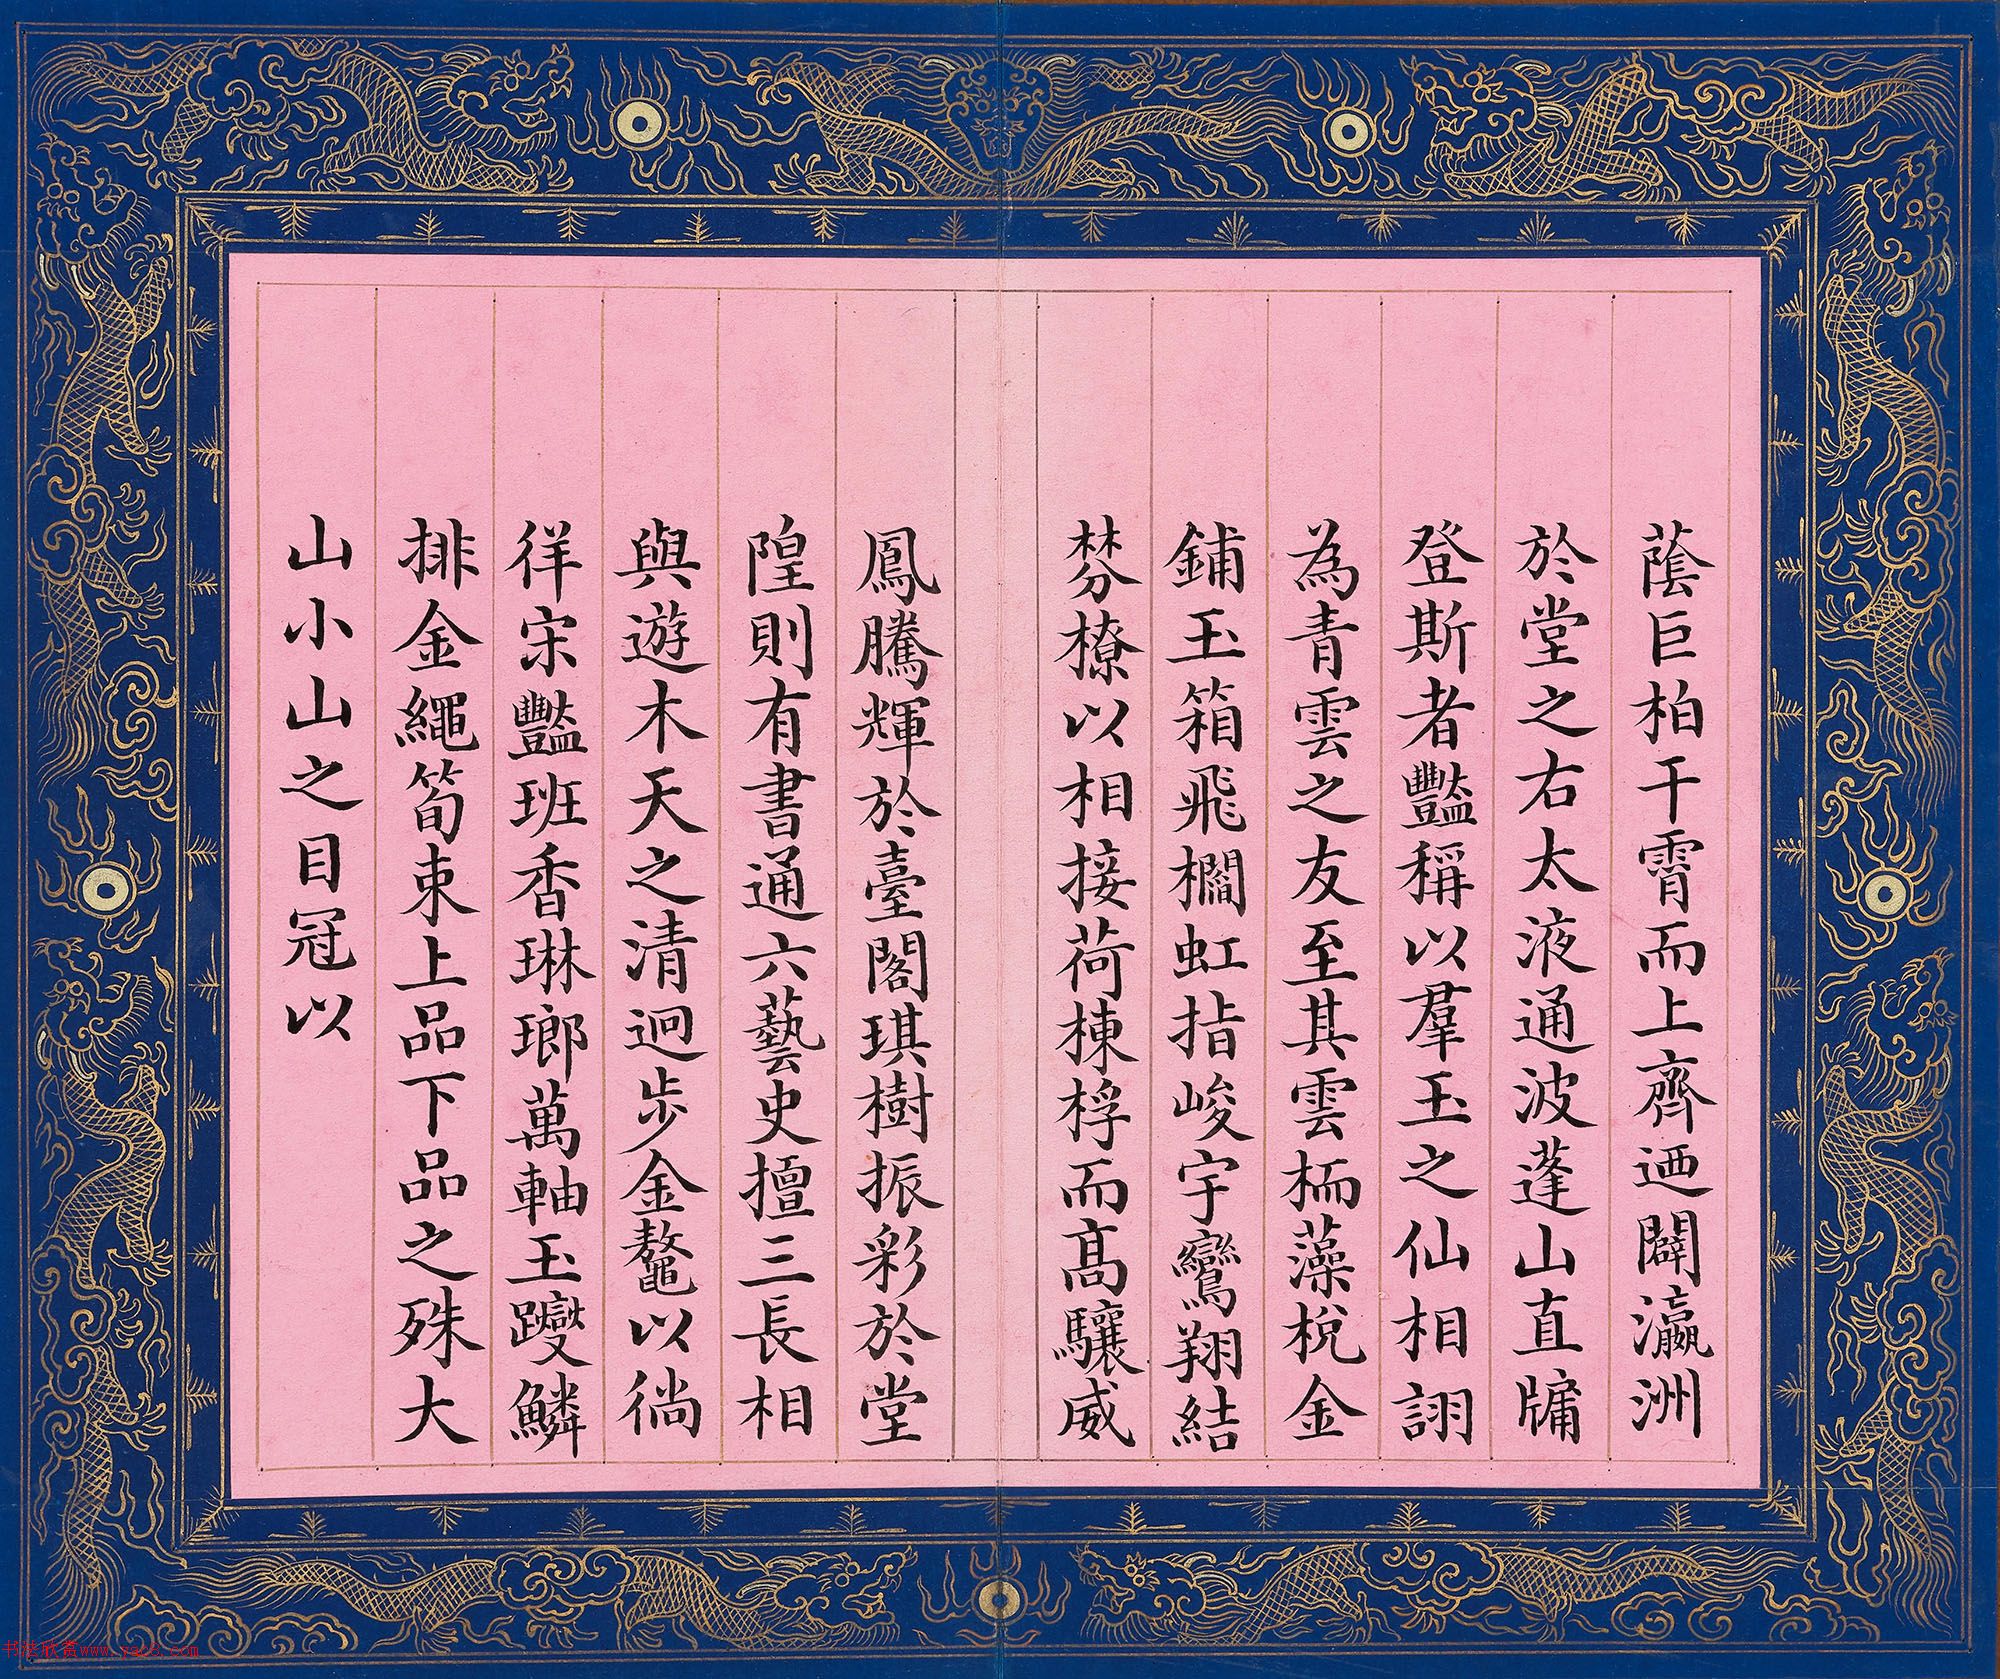 蔭巨柏干霄而上齊迺闢瀛洲
於堂之右太液通波蓬山直牖
登斯者豔稱以羣玉之仙相詡
為青雲之友至其雲栭藻梲金
鋪玉箱飛櫩虹指峻宇鸞翔結
棼橑以相接荷棟桴而高驤威
鳳騰輝於臺閣琪樹振彩於堂
隍則有書通六藝史擅三長相
與遊木天之清迥步金鼇以徜
徉宋豔班香琳瑯萬軸玉躞鱗
排金繩笥束上品下品之殊大
山小山之目冠以
书法欣赏www.yac8.com